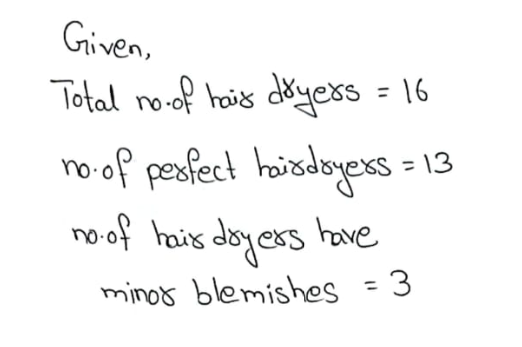 Given,
Total no.of hair dryers = 16
no.of perfect hairdryers = 13
no.of hair dryers have
minor blemishes = 3